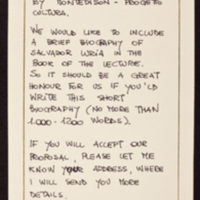 BY MONTEDISON - PROGETTO
CULTURA.
WE WOULD LIKE TO INCLUDE
A BRIEF BIOGRAPHY OF
SALVADOR LURIA IN THE
BOOK OF THE LECTURE.
SO IT SHOULD BE A GREAT
HONOUR FOR US IF YOU'LD
WRITE THIS SHORT
BIOGRAPHY (NO MORE THAN
1.000-1200 WORDS).
IF YOU WILL ACCEPT OUR
PROPOSAL, PLEASE LET ME
KNOW YOUR ADDRESS, WHERE
I WILL SEND YOU MORE
DETAILS.